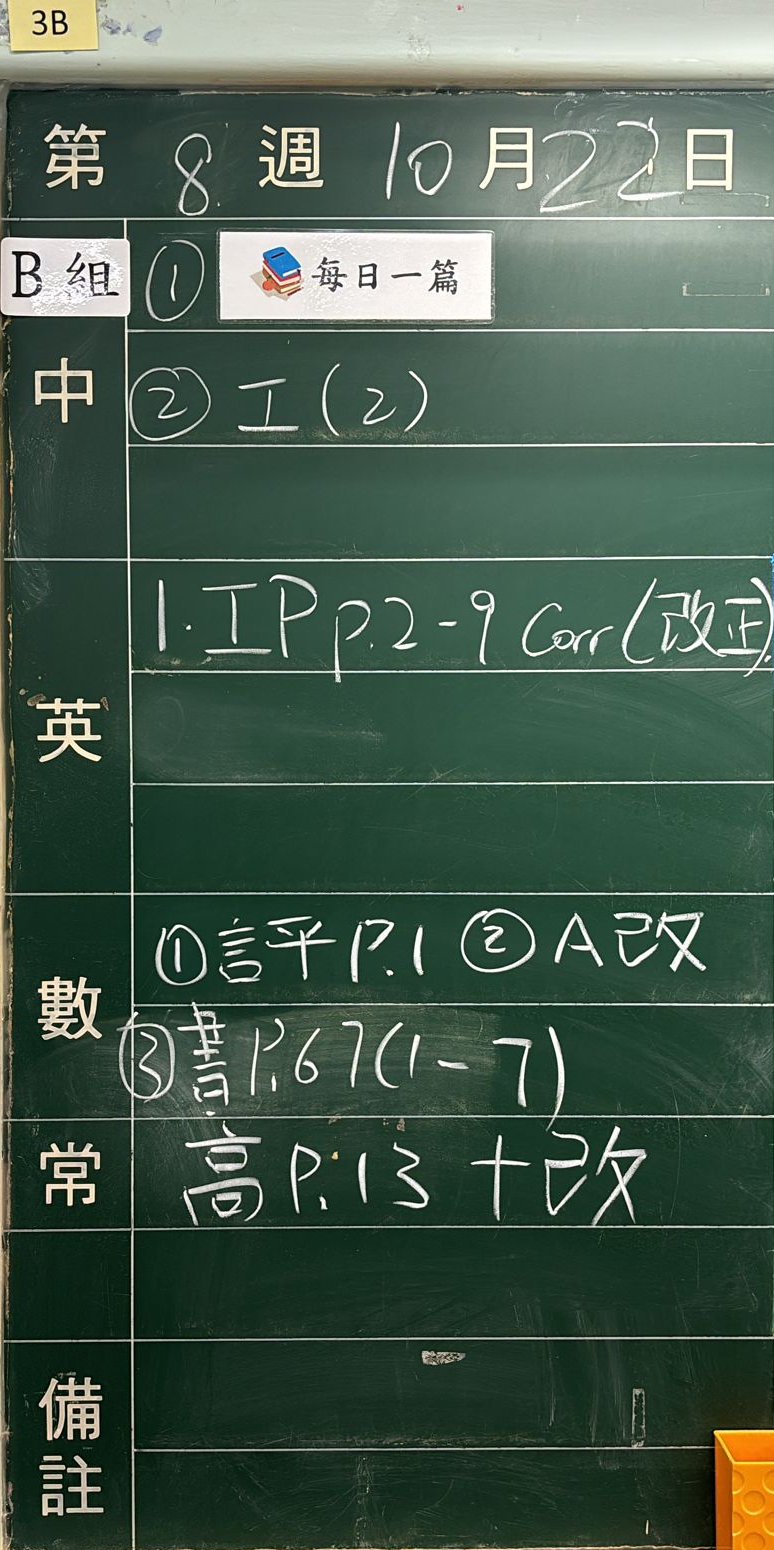 3B
第 8 週 10 月 22 日
B 組 ① 每日一篇
中 ② 工(2)
英 1. IP p.2-9 Corr(改正)
數 ①評 P.1 ②A改
③書 P.67(1-7)
常 高 P.13 + 改
備註